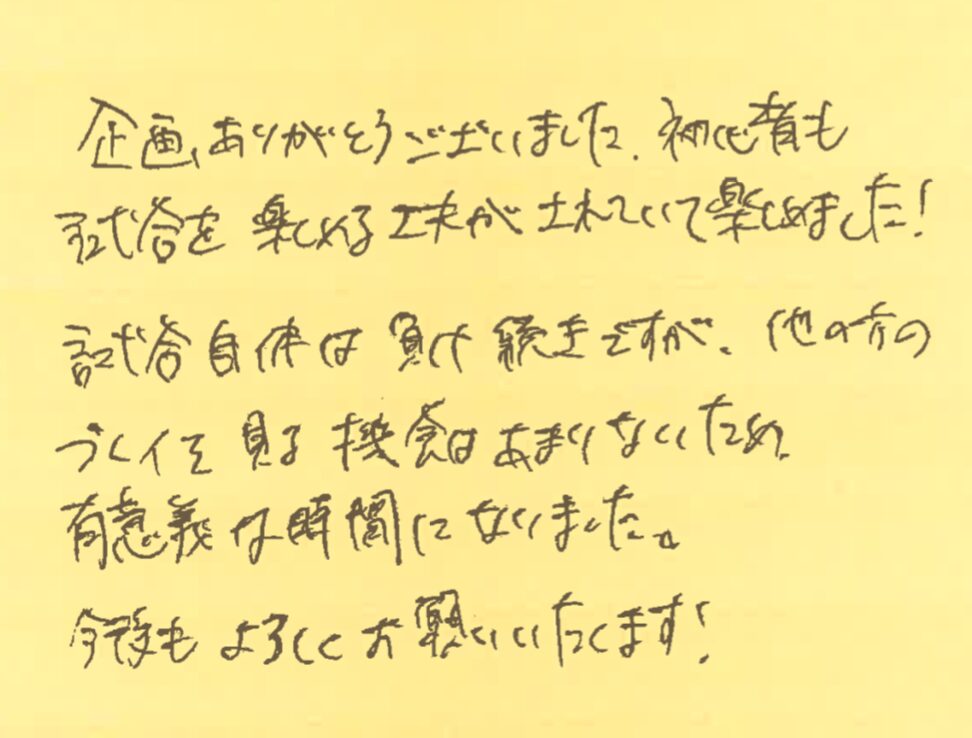 企画、ありがとうございました。初心者も
試合を楽しめる工夫がされていて楽しめました!
試合自体は負け続きですが、他の方の
プレイを見る機会はあまりないため、
有意義な時間になりました。
今後もよろしくお願いいたします!